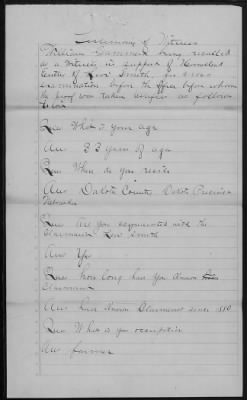 Testimony of Witness
William Sammers being recalled
as a Witness in support of Homestead
Entry of Levi Smith, in cross
examination before the Office before whom
the proof was taken testifies as follows
to wit
Ques What is your age
Ans 33 years of age
Ques Where do you reside
Ans Dakota County Dakota Precinct
Nebraska
Ques Are you acquainted with the
Claimant Levi Smith
Ans Yes
Ques How long have you known
Claimant
Ans have known Claimant since 1880
Ques What is your occupation
Ans farmer